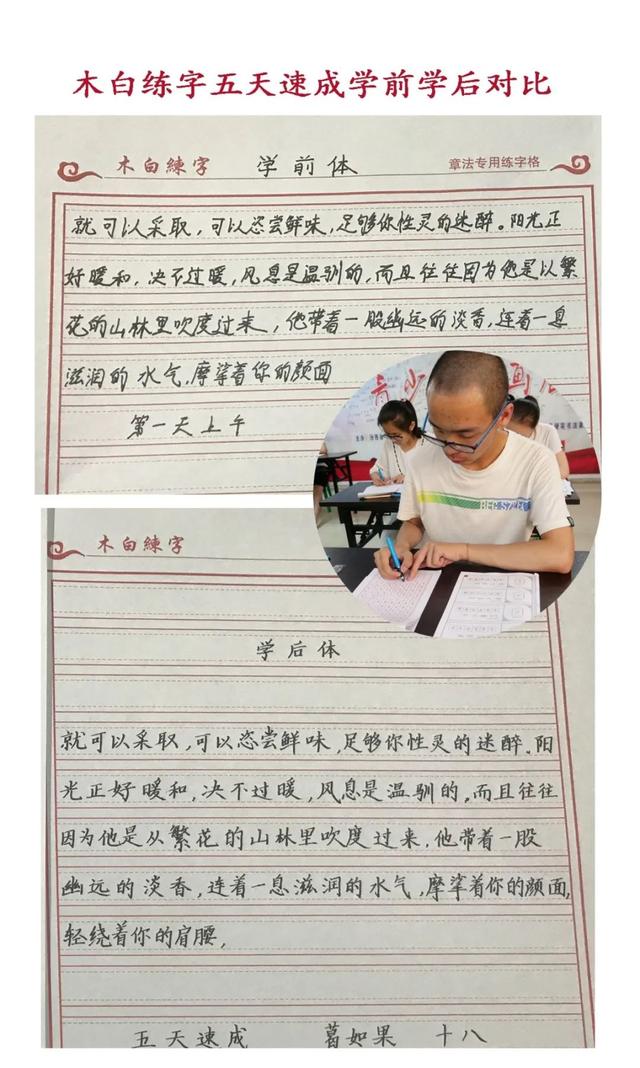 木白练字五天速成学前学后对比
木白練字 学前体 章法专用练字格
就可以采取，可以恣尝鲜味，足够你性灵的迷醉。阳光正
好暖和，决不过暖，风息是温驯的，而且往往因为他是以繁
花的山林里吹度过来，他带着一股幽远的淡香，连着一息
滋润的水气，摩挲着你的颜面
第一天上午
木白練字
学后体
就可以采取，可以恣尝鲜味，足够你性灵的迷醉。阳
光正好暖和，决不过暖，风息是温驯的，而且往往
因为他是从繁花的山林里吹度过来，他带着一股
幽远的淡香，连着一息滋润的水气，摩挲着你的颜面，
轻绕着你的肩腰，
五天速成 葛如果 十八